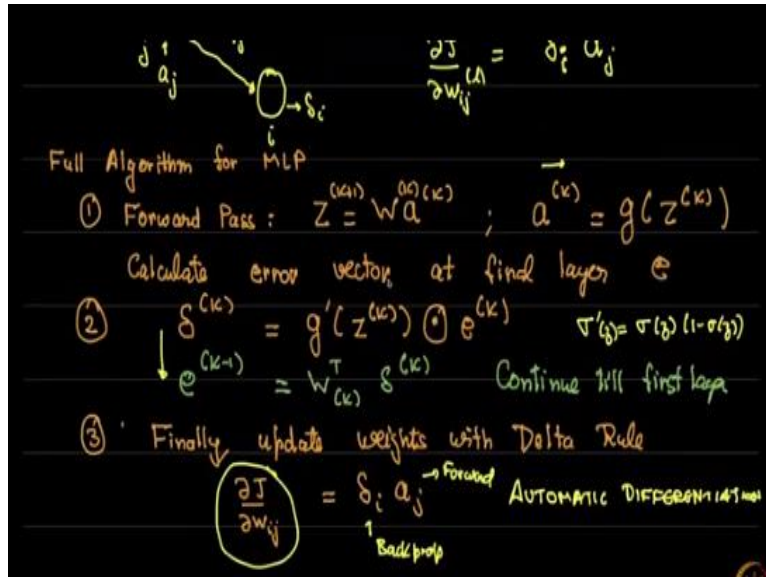 a_j
∂J/∂w_ij^(k) = δ_i a_j
→ δ_i
i
Full Algorithm for MLP
① Forward Pass : z^(k+1) = W^(k) a^(k) ; a^(k) = g(z^(k))
Calculate error vector, at final layer e
② δ^(k) = g'(z^(k)) ⊙ e^(k) σ'(z) = σ(z) (1-σ(z))
e^(k-1) = W^T_(k) δ^(k) Continue till first layer
③ Finally update weights with Delta Rule
∂J/∂w_ij = δ_i a_j → Forward AUTOMATIC DIFFERENTIATION
↑ Backprop